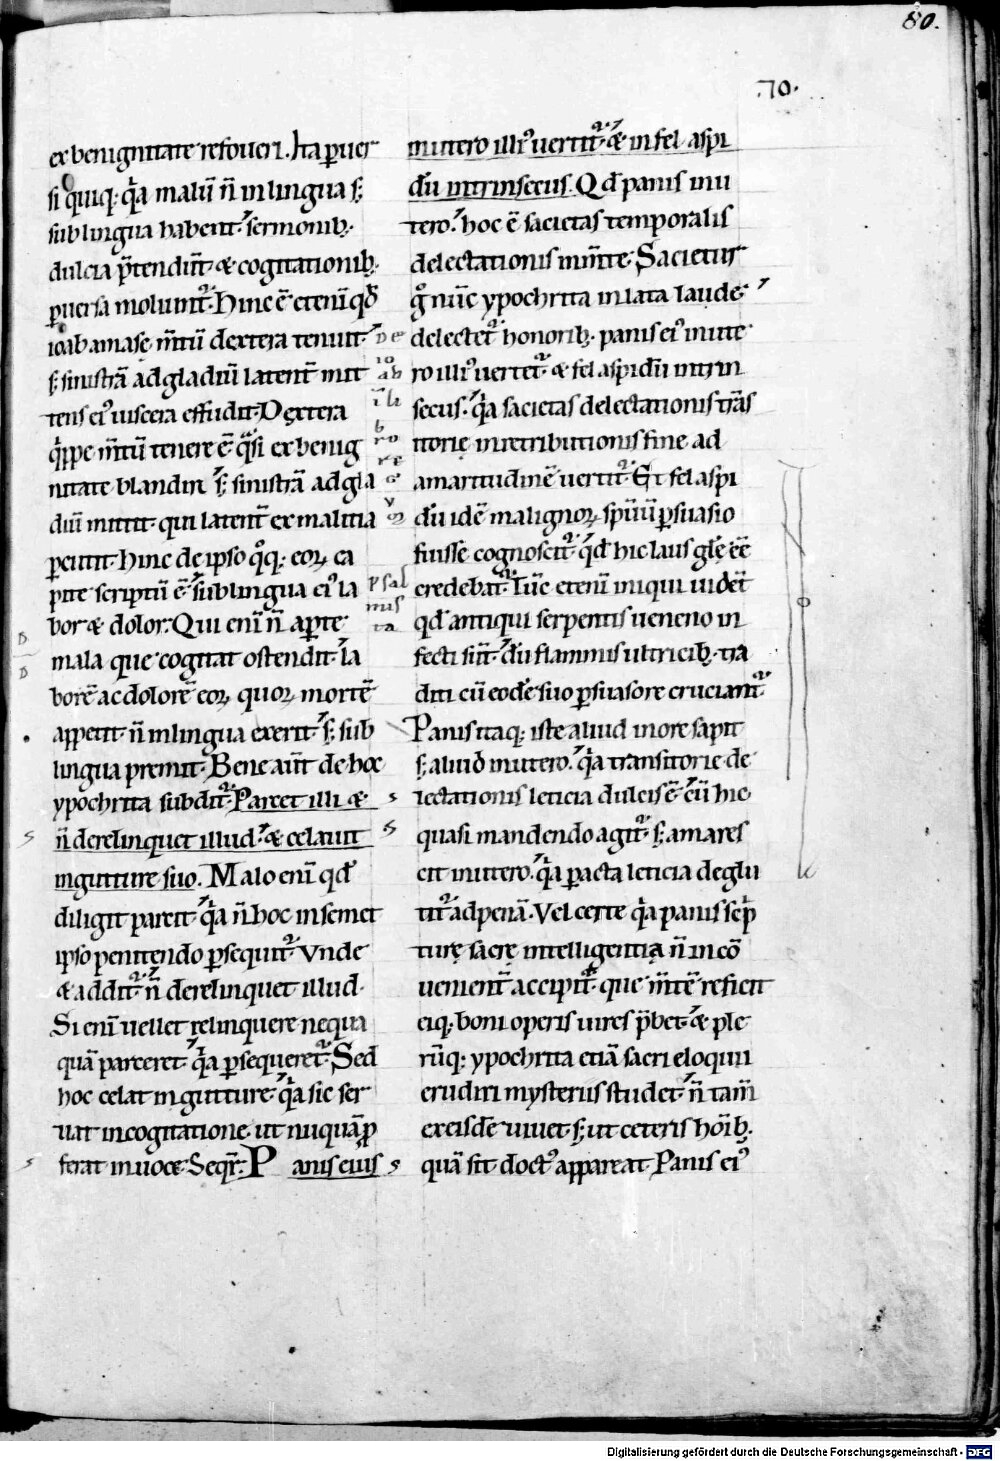 80.
70.
ex benignitate refoueri. Ita puer
si quiq; q̇a malū n̄ in lingua s;
sub lingua habent. sermonib;
dulcia p̄tendūt. & cogitationib;
puersa moliunt᷑. Hinc ē etenī qd̄
ioab amase m̄tū dextera tenuit.
s; sinistrā ad gladiū latent̄ mit
tens ei᷒ uiscera effudit. Dextera
q̇ppe m̄tū tenere ē. q̇si ex benig
nitate blandiri. s; sinistrā ad gla
diū mittit. qui latent̄ ex malitia
pcutit. Hinc de ipso q̊q; eoꝝ ca
pite scriptū ē. sub lingua ei᷒ la
bor & dolor. Qui enī n̄ apte
mala que cogitat ostendit. la
borē ac dolorē eoꝝ quoꝝ mortē
appetit. n̄ in lingua exerit. s; sub
lingua premit. Bene aūt de hoc
ypochrita subdit᷑. Parcet illi &
n̄ derelinquet illud. & celauit
in gutture suo. Malo enī qd̄
diligit parcit. q̇a n̄ hoc in semet
ipso penitendo psequit᷑. Vnde
& addit᷑. n̄ derelinquet illud.
Si enī uellet relinquere nequa
quā parceret. q̇a psequeret᷑. Sed
hoc celat in gutture. q̇a sic ser
uat in cogitatione. ut nūquā p
ferat in uoce. Seqr̄. Panis eius
De
io
ab
ī li
b
ro
re
g
v
m
psal
mis
ta
in utero illi᷒ uertit᷑. & in fel aspi
dū intrinsecus. Qd̄ panis in u
tero. hoc ē sacietas temporalis
delectationis in m̄te. Sacietur
g̊ nūc ypochrita in lata laude.
delectet᷑ honorib; panis ei᷒ in ute
ro illi᷒ uertet᷑. & fel aspidū intrin
secus. q̇a sacietas delectationis trās
itorię in retributionis fine ad
amaritudinē uertit᷑. Et fel aspi
dū idē malignoꝝ spūū psuasio
fuisse cognoscit᷑. qd̄ hic laus glę ēē
credebat᷑. Tūc etenī iniqui uidēt
qd̄ antiqui serpentis ueneno in
fecti sūt. dū flammis ultricib; tra
diti cū eodē suo psuasore cruciant᷑
Panis itaq; iste aliud in ore sapit
s; aliud in utero. q̇a transitorie de
lectationis leticia dulcis ē. cū hic
quasi mandendo agit᷑. s; amares
cit in utero. q̇a pacta leticia deglu
tit᷑ ad penā. Vel certe q̇a panis sc̄p
turę sacrę intelligentia n̄ in cō
uenient̄ accipit᷑. que m̄tē reficit
eiq; boni operis uires p̄bet. & ple
rūq; ypochrita etiā sacri eloquii
erudiri mysteriis studet. n̄ tam̄
ex eisdē uiuet. s; ut ceteris hōib;
quā sit doct᷒ appareat. Panis ei᷒
Digitalisierung gefördert durch die Deutsche Forschungsgemeinschaft - DFG